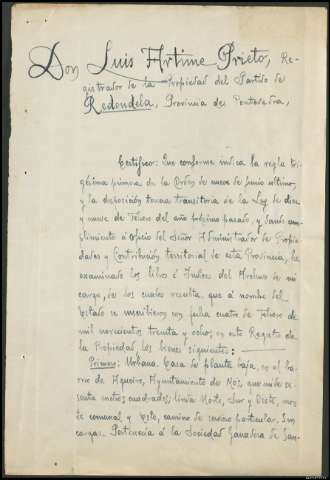 Don Luis Artime Prieto, Re-
gistrador de la Propiedad del Partido de
Redondela, Provincia de Pontevedra,
Certifico: Que conforme indica la regla tri-
gésima primera de la Orden de nueve de Junio último,
y la disposición tercera transitoria de la Ley de diez
y nueve de Febrero del año próximo pasado, y dando cum-
plimiento á oficio del Señor Administrador de Propie-
dades y Contribución territorial de esta Provincia, he
examinado los libros é Indices del Archivo de mi
cargo, de los cuales resulta, que á nombre del
Estado se inscribieron con fecha cuatro de Febrero de
mil novecientos treinta y ocho, en este Registro de
la Propiedad los bienes siguientes:
Primero: Urbana. Casa de planta baja, en el ba-
rrio de Aqueiro, Ayuntamiento de Mos, que mide se-
senta metros cuadrados; linda Norte, Sur y Oeste, mon-
te comunal y Este, camino de servicio particular. Sin
cargas. Pertenecía á la Sociedad Ganadera de San-